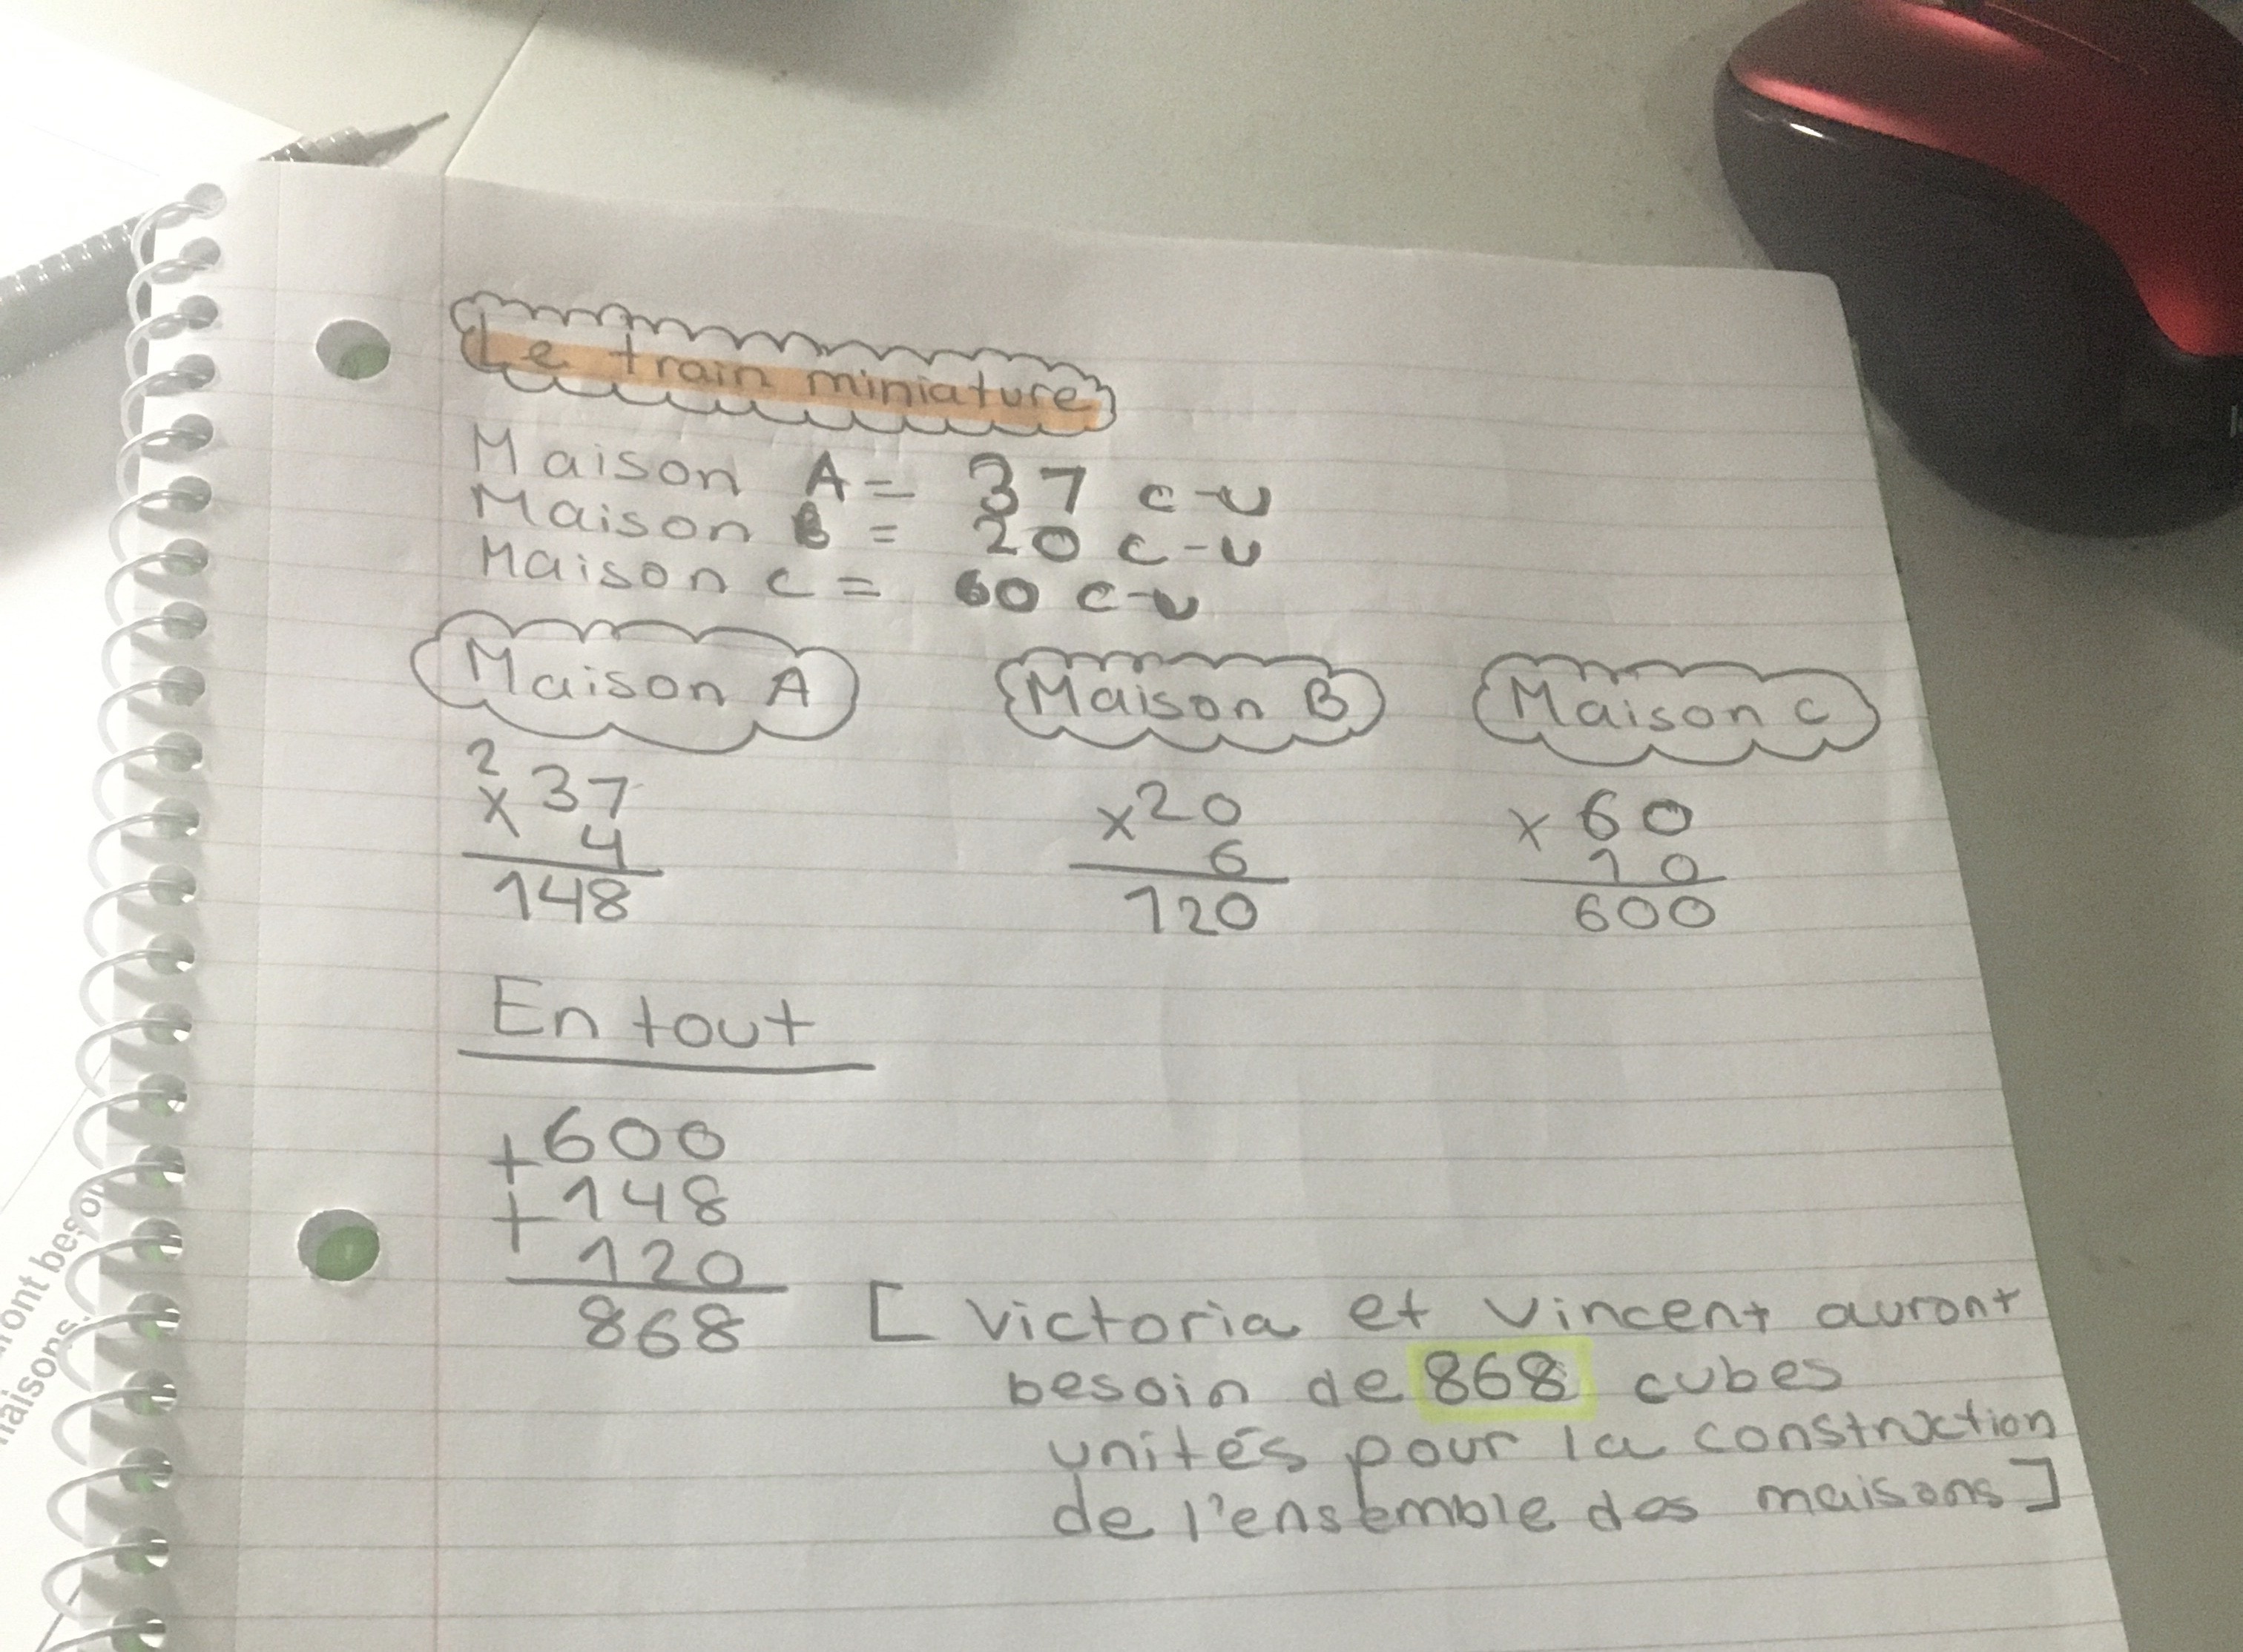 Le train miniature
Maison A = 37 c-u
Maison B = 20 c-u
Maison c = 60 c-u
Maison A
Maison B
Maison c
2
x 37
4
148
x 20
6
120
x 60
10
600
En tout
+ 600
+ 148
120
868
[ Victoria et Vincent auront
besoin de 868 cubes
unités pour la construction
de l'ensemble des maisons ]
ont
maisons.